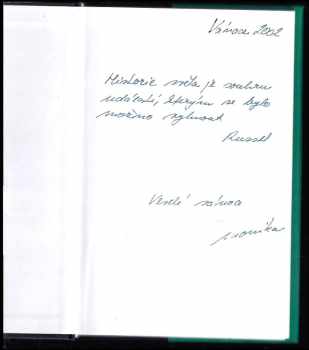 Vánoce 2002
Historie světa je souhrn
událostí, kterým se bylo
možno vyhnout
Russel
Veselé vánoce
Monika